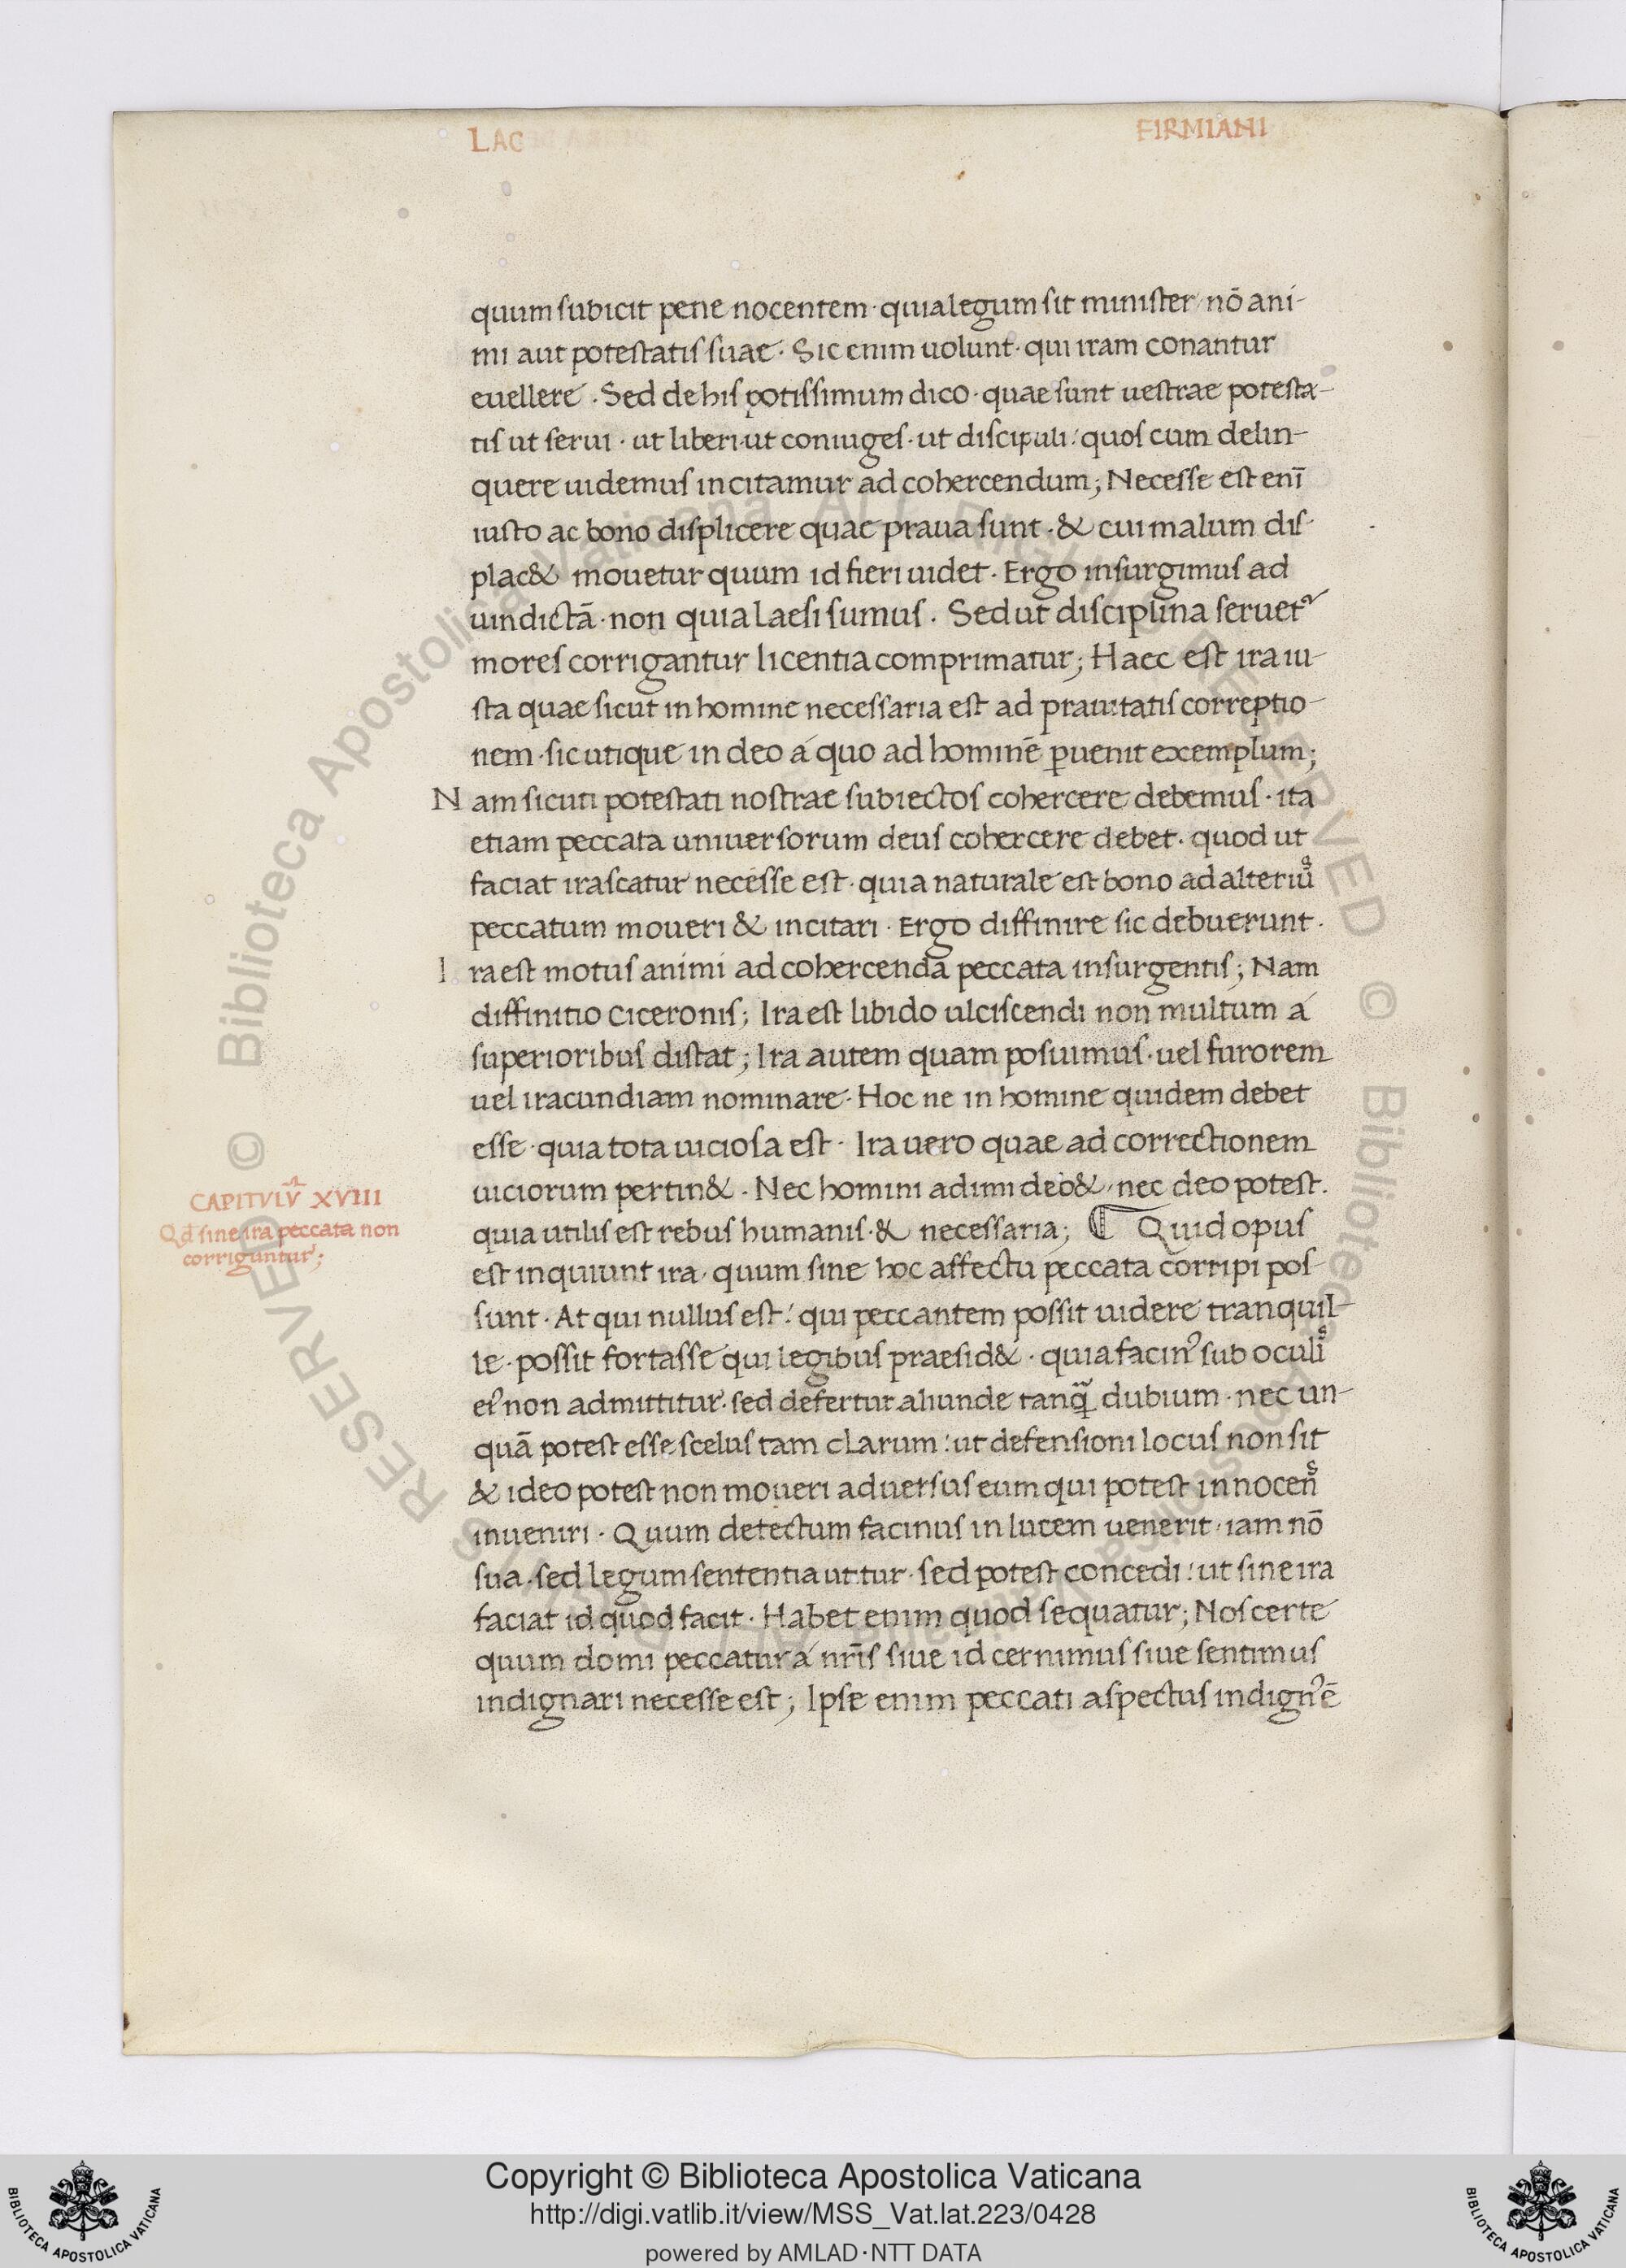 LAC FIRMIANI
quum subicit pene nocentem · quia legum sit minister / nō ani-
mi aut potestatis suae · Sic enim uolunt · qui iram conantur
euellere · Sed de his potissimum dico · quae sunt uestrae potesta-
tis ut serui · ut liberi · ut coniuges · ut discipuli : quos cum delin-
quere uidemus incitamur ad cohercendum ; Necesse est enī
iusto ac bono displicere quae praua sunt · & cui malum dis-
plac& mouetur quum id fieri uidet · Ergo insurgimus ad
uindictā · non quia laesi sumus · Sed ut disciplina seruet᷑
mores corrigantur licentia comprimatur ; Haec est ira iu-
sta quae sicut in homine necessaria est ad prauitatis correptio-
nem · sic utique in deo á quo ad hominē ꝑuenit exemplum ;
Nam sicuti potestati nostrae subiectos cohercere debemus · ita
etiam peccata uniuersorum deus cohercere debet · quod ut
faciat irascatur necesse est · quia naturale est bono ad alteriuˢ
peccatum moueri & incitari · Ergo diffinire sic debuerunt ·
Ira est motus animi ad cohercenda peccata insurgentis ; Nam
diffinitio ciceronis ; Ira est libido ulciscendi non multum á
superioribus distat ; Ira autem quam posuimus · uel furorem
uel iracundiam nominare · Hoc ne in homine quidem debet
esse · quia tota uiciosa est · Ira uero quae ad correctionem
uiciorum pertin& · Nec homini adimi deb& / nec deo potest ·
CAPITVLṼ XVIII
Qđ sine ira peccata non
corriguntur ;
quia utilis est rebus humanis · & necessaria ; ¶ Quid opus
est inquiunt ira · quum sine hoc affectu peccata corripi pos-
sunt · At qui nullus est : qui peccantem possit uidere tranquil-
le · possit fortasse qui legibus praesid& · quia facinꝰ sub oculiˢ
eiꝰ non admittitur · sed defertur aliunde tanqᷓ dubium · nec un-
quā potest esse scelus tam clarum : ut defensioni locus non sit
& ideo potest non moueri aduersus eum qui potest innocenˢ
inueniri · Quum detectum facinus in lucem uenerit · iam nō
sua · sed legum sententia utitur · sed potest concedi : ut sine ira
faciat id quod facit · Habet enim quod sequatur ; Nos certe
quum domi peccatur á nr̄is siue id cernimus siue sentimus
indignari necesse est ; Ipse enim peccati aspectus indignꝰ ē
© Biblioteca Apostolica Vaticana ALL RIGHTS RESERVED © Biblioteca Apostolica Vaticana ALL RIGHTS RESERVED
Copyright © Biblioteca Apostolica Vaticana
http://digi.vatlib.it/view/MSS_Vat.lat.223/0428
powered by AMLAD·NTT DATA
BIBLIOTECA APOSTOLICA VATICANA
BIBLIOTECA APOSTOLICA VATICANA